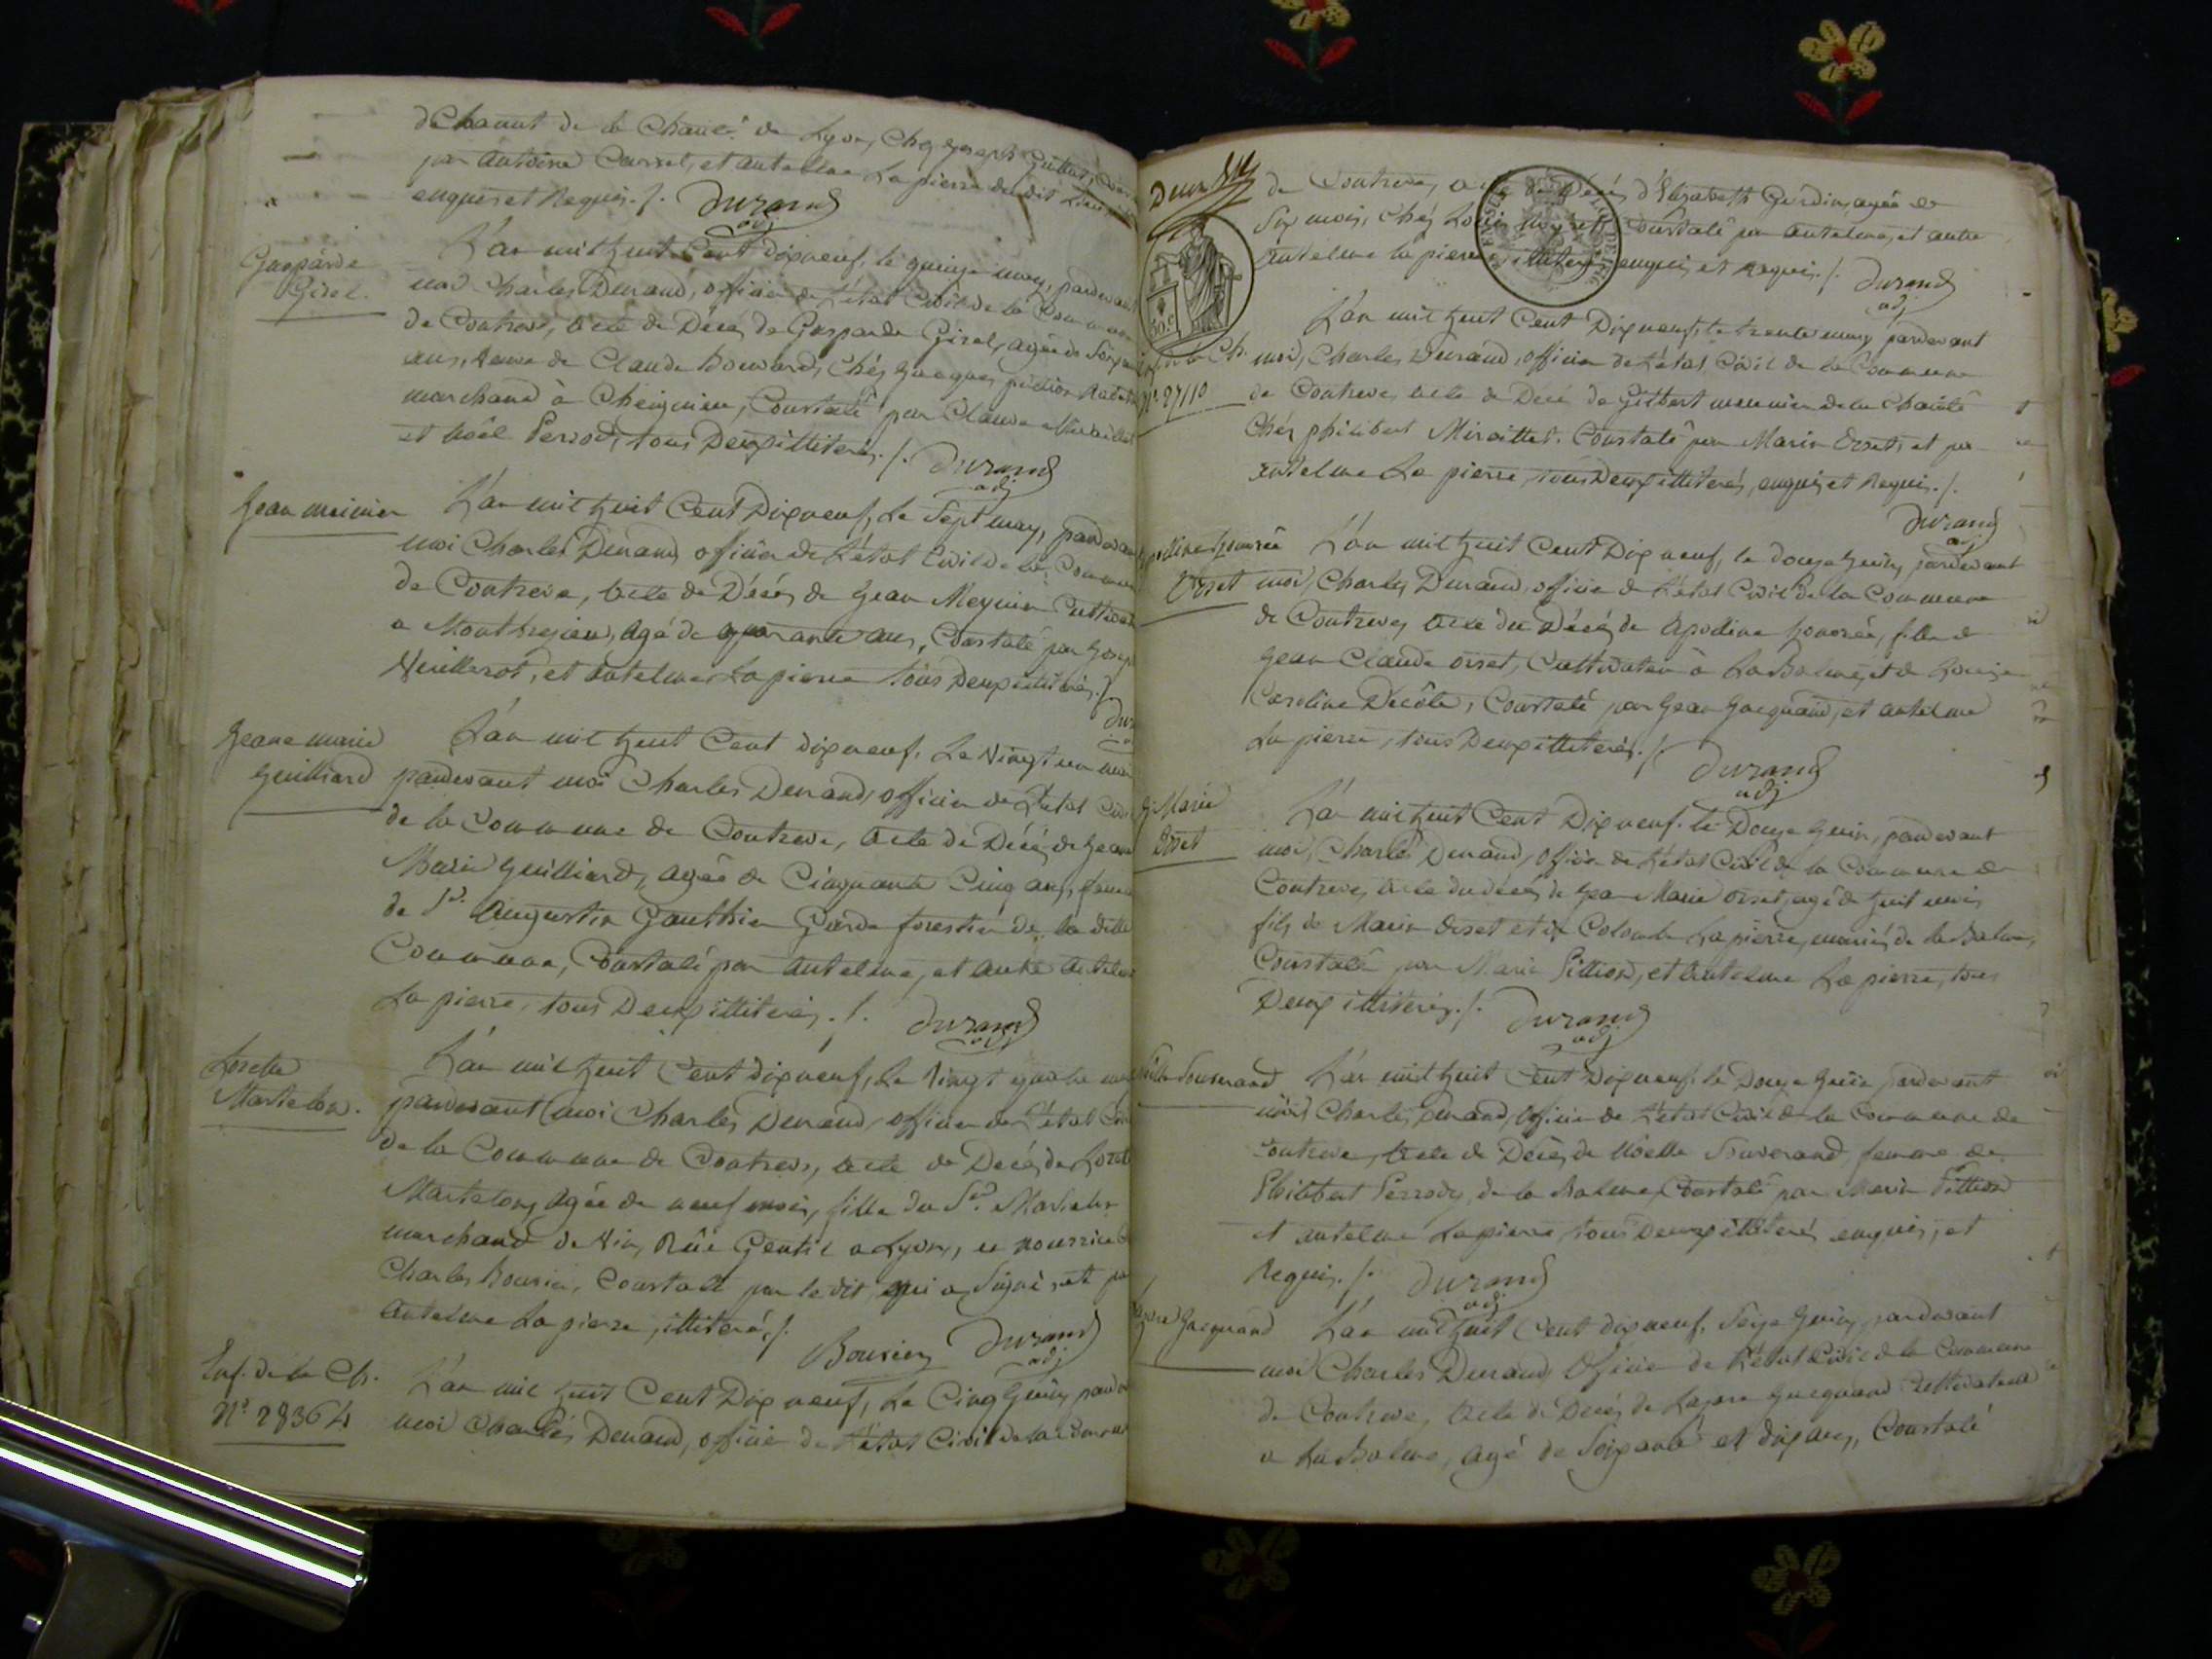 de la Charité de Lyon, Chez Joseph Guillot,
par Antoine Carrel, et antelme La pierre dudit Lieu
enquis et Requis ./. Durand
adj
Gasparde
Girel.
L'an mil huit Cent Dixneuf, le quinze may, pardevant
moi Charles Durand, officier de L'état Civil de la Commune
de Contrevoz, acte de Décès de Gasparde Girel, agée de
ans, veuve de Claude Bouvard, Chés Jacques pillion
marchand à Cheignieu, Constaté par Claude
et Noël Perrod, tous Deux illiterés ./. Durand
adj
Jean meinier
L'an mil huit Cent Dixneuf, Le Sept may, pardevant
moi Charles Durand officier de L'état Civil de la Commune
de Contrevoz, acte de Décès de Jean Meynier Cultivateur
a Montbreysieu, Agé de quarante ans, Constaté par Joseph
Neuillerot, et Antelme Lapierre tous Deux illiterés ./.
Jeane marie
Guilliard
L'an mil huit Cent dixneuf. Le Vingt un may
pardevant moi Charles Durand, officier de L'état Civil
de la Commune de Contrevoz, acte de Décès de Jeane
Marie Guilliard, agée de Cinquante Cinq ans, femme
de Sr. Augustin Gauthier Garde forestier de la ditte
Commune, Constaté par antelme, et autre Antelme
La pierre, tous Deux illiterés ./. Durand
adj
Lozette
Martelon.
L'an mil huit Cent dixneuf, Le Vingt quatre may
pardevant moi Charles Durand, officier de L'état Civil
de la Commune de Contrevoz, acte de Décès de Lozette
Martelon, Agée de neuf mois, fille du Sr. Martelon
marchand de Vin, Rüe Gentil a Lyon, en nourrice
Charles Bouvier, Constaté par ledit qui a Signé, et par
Antelme La pierre, illiteré ./.
Bouvier Durand
adj
Enf. de la Ch.
N° 28364
L'an mil huit Cent Dix neuf, Le Cinq Juin, pardevant
moi Charles Durand, officier de L'état Civil de la Commune
Deux
de Contrevoz, acte de Décès d'Elizabeth Gurdin, agée de
Six mois, Chés Louis Constaté par antelme, et autre
Antelme la pierre illiterés enquis et Requis ./. Durand
adj
de la Ch.
N° 27110
L'an mil huit Cent Dixneuf, le trente may pardevant
moi, Charles Durand, officier de L'état Civil de la Commune
de Contrevoz, acte de Décès de Gilbert meunier de la Charité
Chés philibert Miraillet. Constaté par Marin Orset, et par
Antelme La pierre, tous Deux illiterés, enquis et Requis ./.
Durand
adj
Apolline honorée
Orset
L'an mil huit Cent Dix neuf, le douze Juin, pardevant
moi, Charles Durand, officier de L'état Civil de la Commune
de Contrevoz, acte du Décès de Apolline honorée, fille de
Jean Claude orset, Cultivateur à La Balme, et de Louise
Caroline Décôte, Constaté par Jean Jacquand, et antelme
La pierre, tous Deux illiterés ./. Durand
adj
J. Marie
Orset
L'an mil huit Cent Dixneuf. le Douze Juin, pardevant
moi, Charles Durand, Officier de L'état Civil de la Commune de
Contrevoz, acte du décès de Jean Marie orset, agé de huit mois,
fils de Marin Orset et de Colombe La pierre, mariés de la Balme,
Constaté par Marin Pillion, et Antelme La pierre, tous
Deux illiterés ./. Durand
adj
Noëlle Souverand
L'an mil huit Cent Dixneuf. le Douze Juin pardevant
moi Charles Durand, Officier de L'état Civil de la Commune de
Contrevoz, acte de Décès de Noëlle Souverand, femme de
Philibert Perrod, de la Balme, Constaté par Marin Pillion
et antelme Lapierre tous Deux illiterés enquis, et
Requis ./. Durand
adj
Lazare Jacquand
L'an mil huit Cent dixneuf. Seize Juin, pardevant
moi Charles Durand Officier de L'état Civil de la Commune
de Contrevoz, acte de Décès de Lazare Jacquand Cultivateur
a La Balme, agé de Soixante et dix ans, Constaté